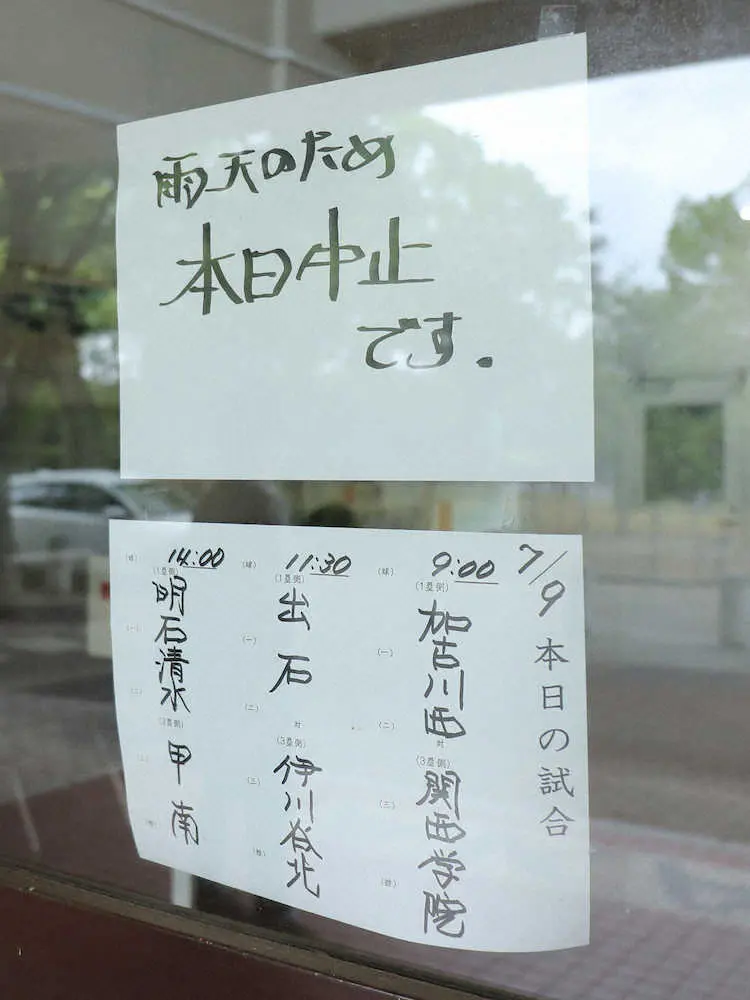 雨天のため
本日中止
です.
7/9 本日の試合
9:00
(1塁側)
加古川西
対
(3塁側)
関西学院
11:30
(1塁側)
出石
対
(3塁側)
伊川谷北
14:00
(1塁側)
明石清水
(3塁側)
甲南